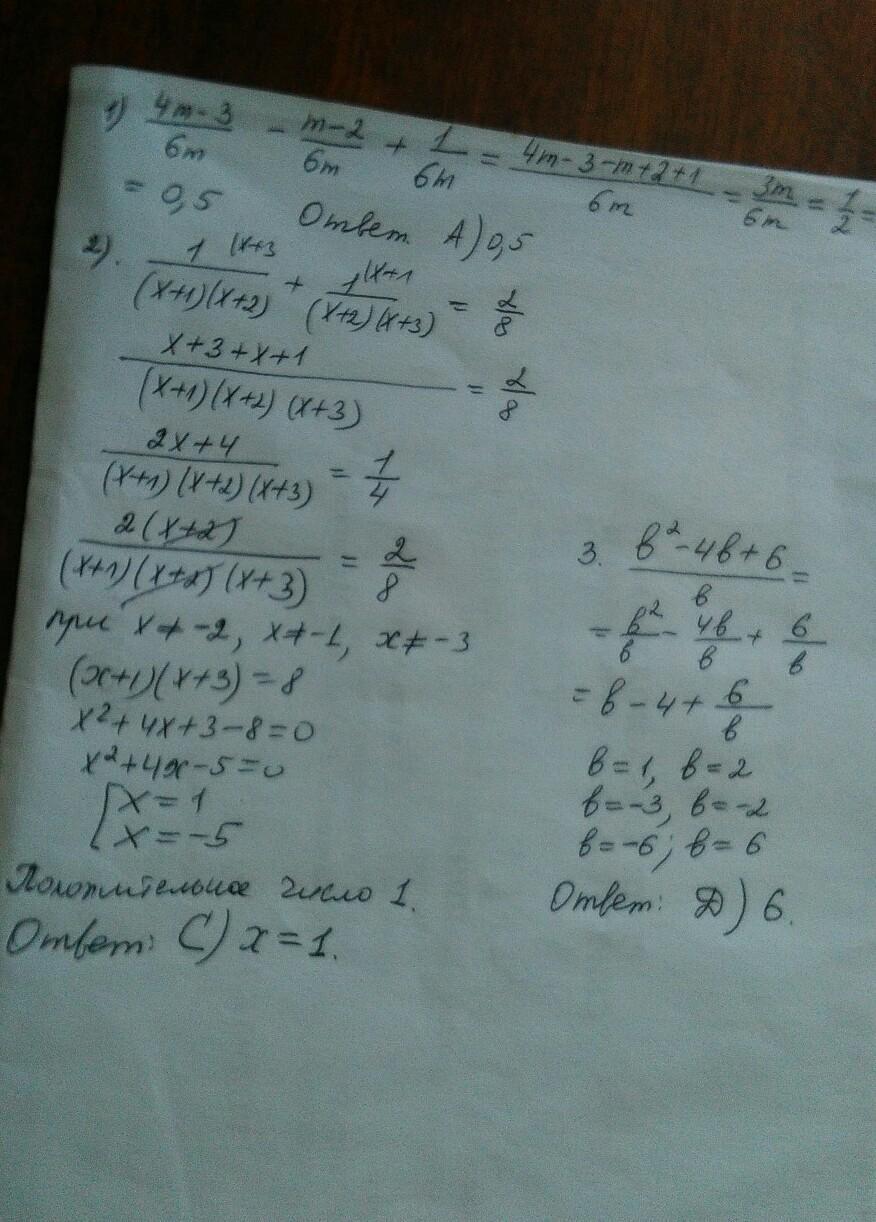 1) (4m-3)/6m - (m-2)/6m + 1/6m = (4m-3-m+2+1)/6m = 3m/6m = 1/2 =
= 0,5 Ответ А) 0,5
2). 1 (x+3 / (x+1)(x+2) + 1 (x+1 / (x+2)(x+3) = 2/8
(x+3+x+1) / (x+1)(x+2)(x+3) = 2/8
(2x+4) / (x+1)(x+2)(x+3) = 1/4
2(x+2) / (x+1)(x+2)(x+3) = 2/8
при x≠-2, x≠-1, x≠-3
(x+1)(x+3)=8
x²+4x+3-8=0
x²+4x-5=0
[x=1
x=-5
Положительное число 1.
Ответ: С) x=1.
3. (в²-4в+6)/в =
= в²/в - 4в/в + 6/в
= в - 4 + 6/в
в=1, в=2
в=-3, в=-2
в=-6; в=6
Ответ: Д) 6.